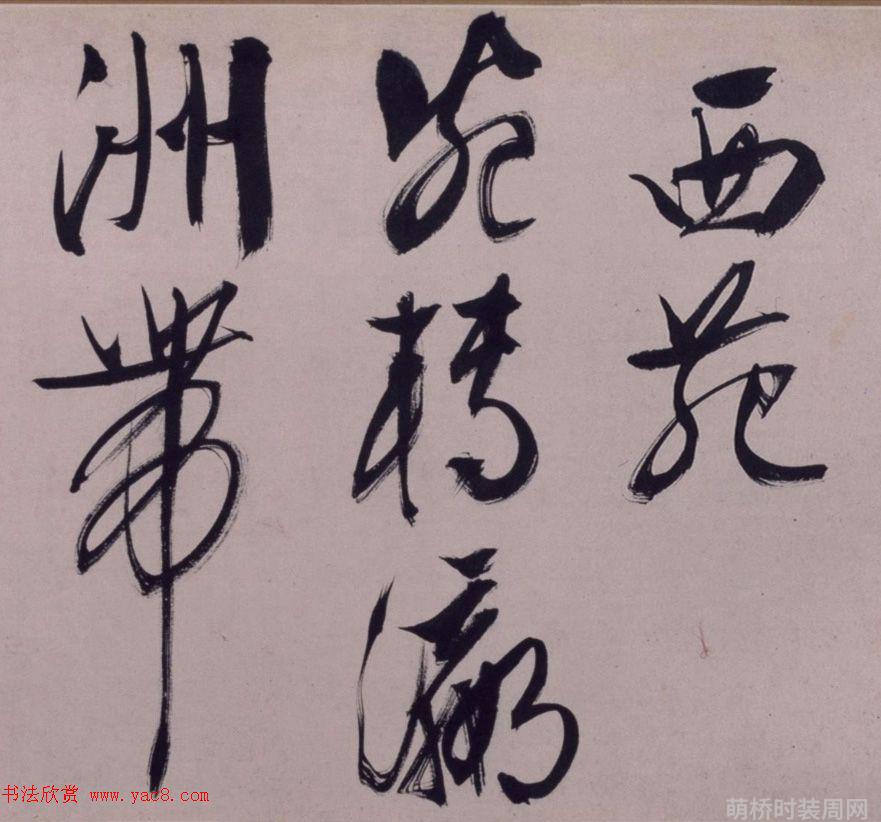 西苑
宛轉瀛
洲帶
书法欣赏 www.yac8.com
萌桥时装周网